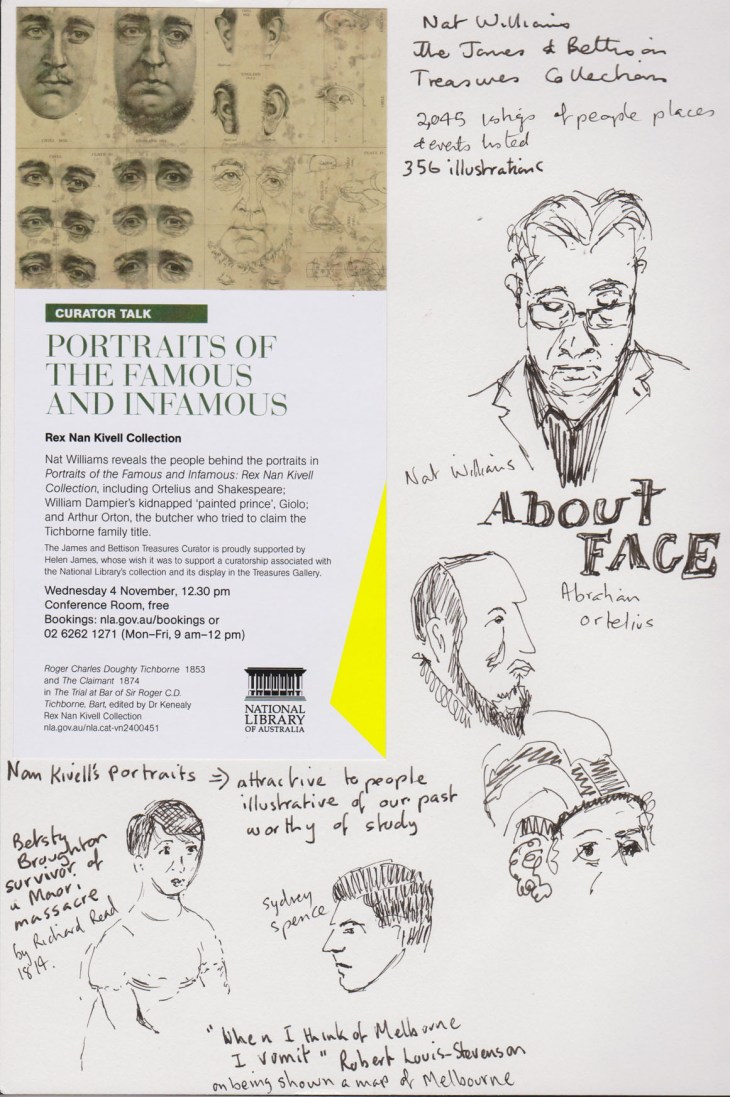 Nat Williams
The James & Bettison
Treasures Collection
2,045 of people places
& events listed
356 illustrations
CURATOR TALK
PORTRAITS OF
THE FAMOUS
AND INFAMOUS
Rex Nan Kivell Collection
Nat Williams reveals the people behind the portraits in
Portraits of the Famous and Infamous: Rex Nan Kivell
Collection, including Ortelius and Shakespeare;
William Dampier's kidnapped 'painted prince', Giolo;
and Arthur Orton, the butcher who tried to claim the
Tichborne family title.
The James and Bettison Treasures Curator is proudly supported by
Helen James, whose wish it was to support a curatorship associated with
the National Library's collection and its display in the Treasures Gallery.
Wednesday 4 November, 12.30 pm
Conference Room, free
Bookings: nla.gov.au/bookings or
02 6262 1271 (Mon–Fri, 9 am–12 pm)
Roger Charles Doughty Tichborne 1853
and The Claimant 1874
in The Trial at Bar of Sir Roger C.D.
Tichborne, Bart, edited by Dr Kenealy
Rex Nan Kivell Collection
nla.gov.au/nla.cat-vn2400451
NATIONAL
LIBRARY
OF AUSTRALIA
Nat Williams
ABOUT
FACE
Abrahan
ortelius
Nan Kivell's portraits => attractive to people
illustrative of our past
worthy of study
Betsty
Broughton
survivor of
a Maori
massacre
by Richard Read
1814.
Sydney
Spence
"When I think of Melbourne
I vomit" Robert Louis-Stevenson
on being shown a map of Melbourne